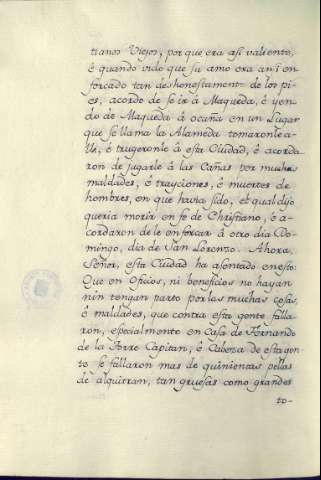 tianos Viejos, porque era asi valiente,
é quando vido que su amo era ansi en-
forcado tan deshonestamente de los pi-
es, acordo de se ir á Maqueda, é yen-
do de Maqueda á ocaña en un Lugar
que se llama la Alameda tomaronle a-
llí, é trugeronle á esta Ciudad, é acorda-
ron de jugarle á las Cañas por muchas
maldades, é trayciones, é muertes de
hombres, en que havia sido, el qual dijo
queria morir en fe de Christiano, é a-
cordaron de le enforcar á otro dia Do-
mingo, dia de San Lorenzo. Ahora,
Señor, esta Ciudad ha asentado en esto:
Que en Oficios, ni beneficios no hayan
nin tengan parte por las muchas cosas,
é maldades, que contra esta gente falla-
ron, especialmente en Casa de Fernando
de la Torre Capitan, é Cabeza de esta gen-
te, se fallaron mas de quinientas pellas
de alquitran, tan gruesas como grandes
to-